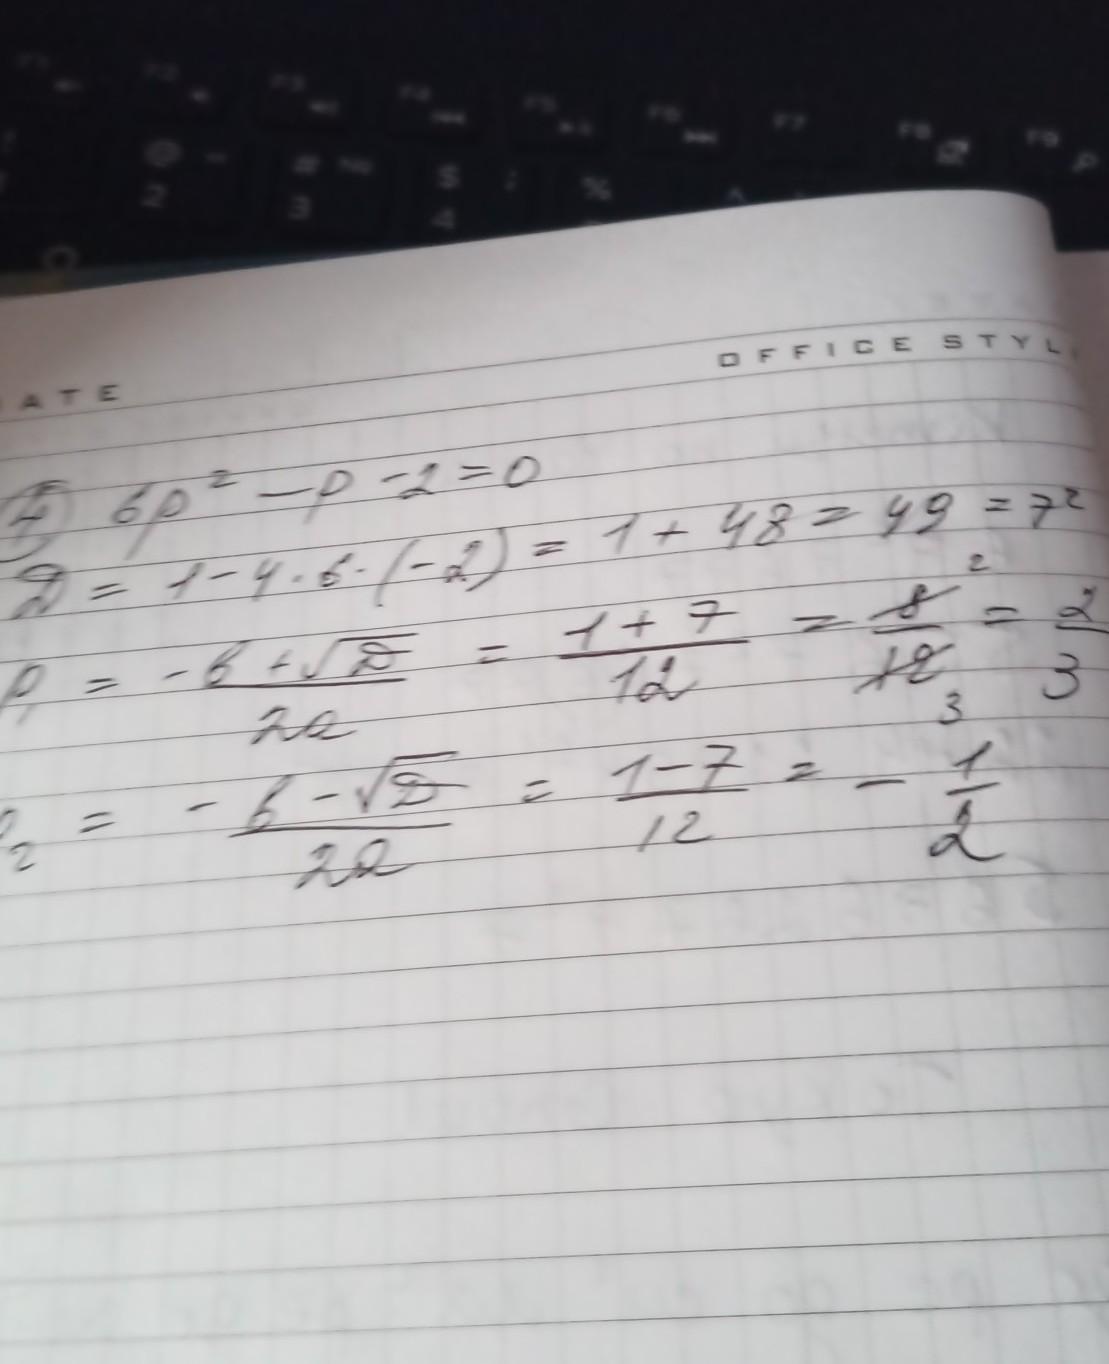 F1 F2 F3 F4 F5 F6 F7 F8 F9
@ 2 # № 3 $ ; 4 % ^
ATE OFFICE STYL
6p² - p - 2 = 0
D = 1 - 4 · 6 · (-2) = 1 + 48 = 49 = 7²
p₁ = (-b + √D)/2a = (1 + 7)/12 = 8/12 = 2/3
2 3
p₂ = (-b - √D)/2a = (1 - 7)/12 = - 1/2